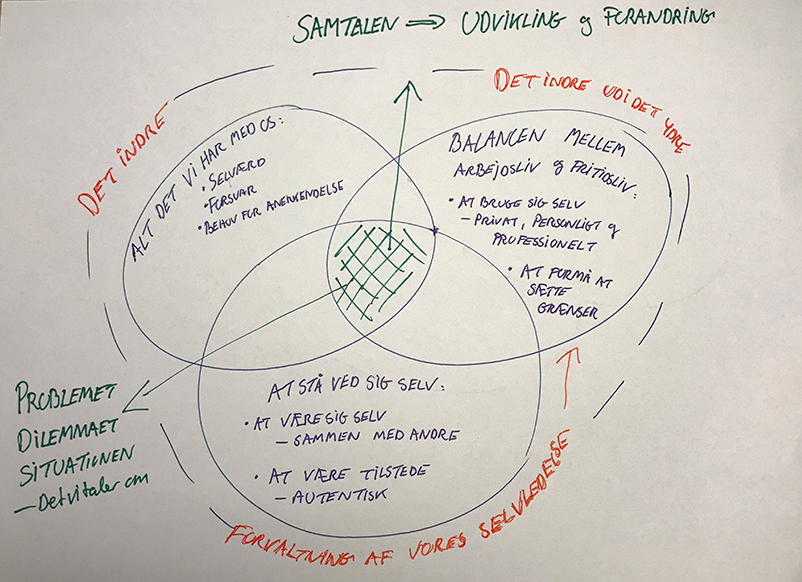 SAMTALEN ⇒ UDVIKLING og FORANDRING
DET INDRE
DET INDRE UDI DET YDRE
ALT DET VI HAR MED OS:
• SELVÆRD
• FORSVAR
• BEHOV FOR ANERKENDELSE
BALANCEN MELLEM
ARBEJDSLIV og FRITIDSLIV:
• AT BRUGE SIG SELV
– PRIVAT, PERSONLIGT og
PROFESSIONELT
• AT FORMÅ AT
SÆTTE
GRÆNSER
PROBLEMET
DILEMMAET
SITUATIONEN
– Det vi taler om
AT STÅ VED SIG SELV:
• AT VÆRE SIG SELV
– SAMMEN MED ANDRE
• AT VÆRE TILSTEDE
– AUTENTISK
FORVALTNING AF VORES SELVLEDELSE